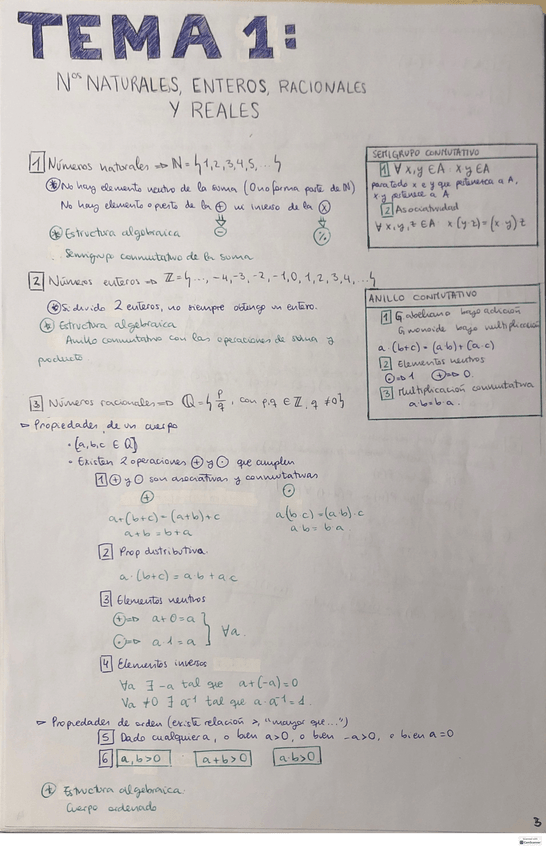 TEMA 1:
Nos NATURALES, ENTEROS, RACIONALES
Y REALES
1 Números naturales ⇒ ℕ = {1,2,3,4,5,...}
* No hay elemento neutro de la suma (0 no forma parte de ℕ)
No hay elemento opuesto de la ⊕ ni inverso de la ⊗
* Estructura algebraica
Semigrupo conmutativo de la suma
SEMIGRUPO CONMUTATIVO
1 ∀ x,y ∈ A · x·y ∈ A
para todo x e y que pertenezca a A,
x·y pertenece a A
2 Asociatividad
∀ x,y,z ∈ A x·(y·z) = (x·y)·z
2 Números enteros ⇒ ℤ = {..., -4,-3,-2,-1,0,1,2,3,4,...}
* Si divido 2 enteros, no siempre obtengo un entero.
* Estructura algebraica
Anillo conmutativo con las operaciones de suma y
producto
ANILLO CONMUTATIVO
1 G. abeliano bajo adición
G. monoide bajo multiplicación
a·(b+c) = (a·b)+(a·c)
2 Elementos neutros
⊙ ⇒ 1 ⊕ ⇒ 0.
3 Multiplicación conmutativa
a·b = b·a.
3 Números racionales ⇒ ℚ = {p/q, con p,q ∈ ℤ, q ≠ 0}
▷ Propiedades de un cuerpo
• {a,b,c ∈ ℚ}
• Existen 2 operaciones ⊕ y ⊙ que cumplen
1 ⊕ y ⊙ son asociativas y conmutativas
⊕ ⊙
a+(b+c) = (a+b)+c a(b·c) = (a·b)·c
a+b = b+a a·b = b·a
2 Prop distributiva.
a·(b+c) = a·b + a·c
3 Elementos neutros
⊕ ⇒ a+0 = a
⊙ ⇒ a·1 = a } ∀a.
4 Elementos inversos
∀a ∃ -a tal que a+(-a) = 0
∀a ≠ 0 ∃ a⁻¹ tal que a·a⁻¹ = 1.
▷ Propiedades de orden (existe relación >, "mayor que...")
5 Dado cualquier a, o bien a>0, o bien -a>0, o bien a=0
6 a,b>0 a+b>0 a·b>0
* Estructura algebraica:
Cuerpo ordenado
3
CamScanner